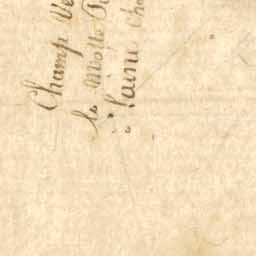 Champ Ve
la Motte
laine Cha